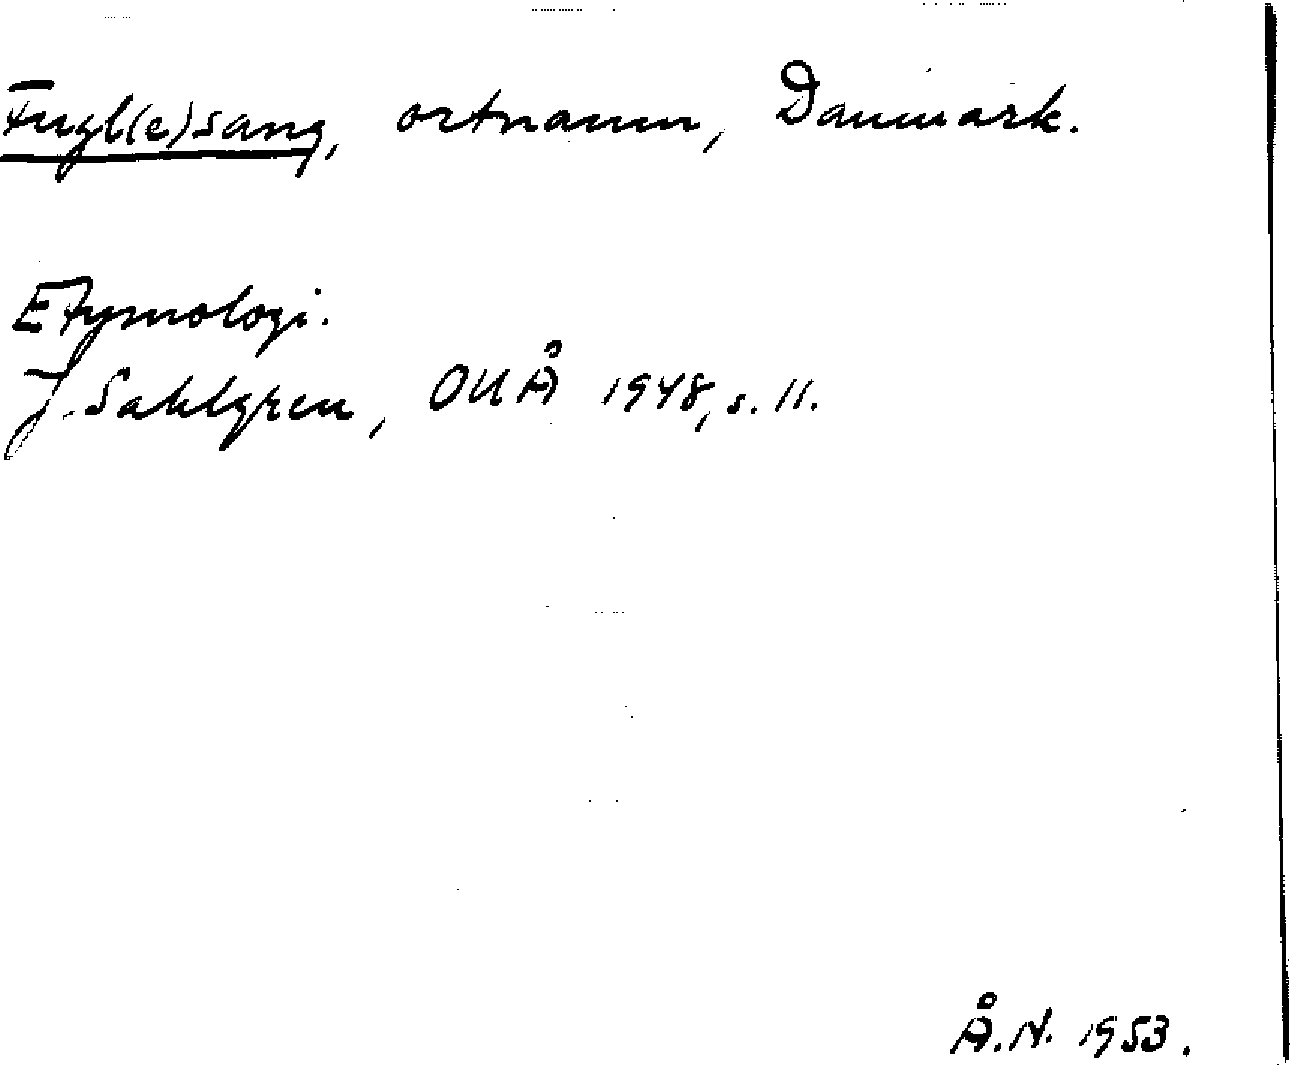 Fugl(e)sang, ortnamn, Danmark.
Etymologi.
J. Sahlgren, OUÅ 1948, s. 11.
Å.N. 1953.